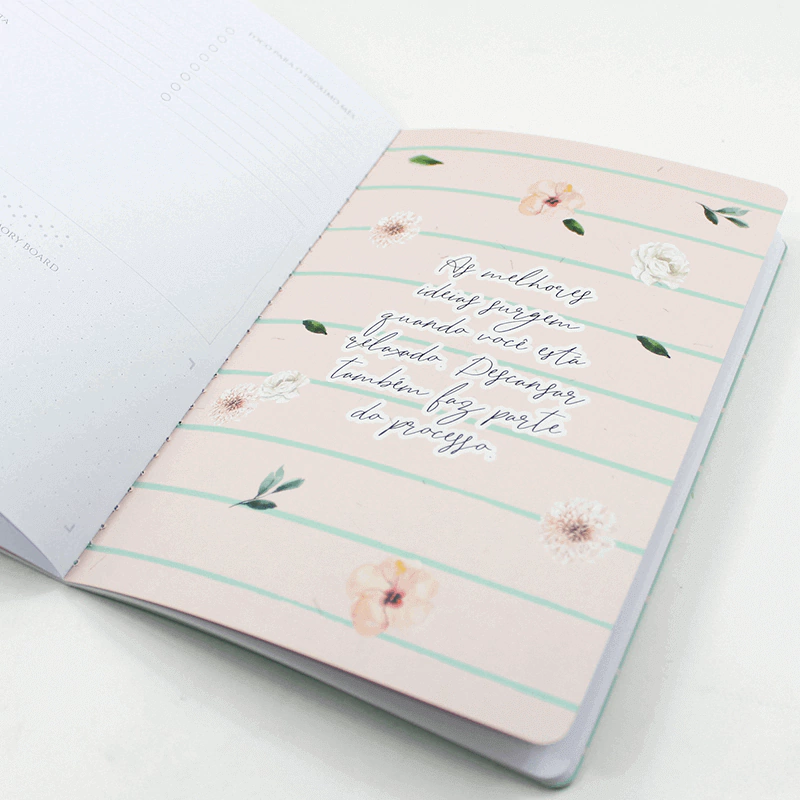 FOCO PARA O PRÓXIMO MÊS
ORY BOARD
As melhores
ideias surgem
quando você está
relaxado. Descansar
também faz parte
do processo.